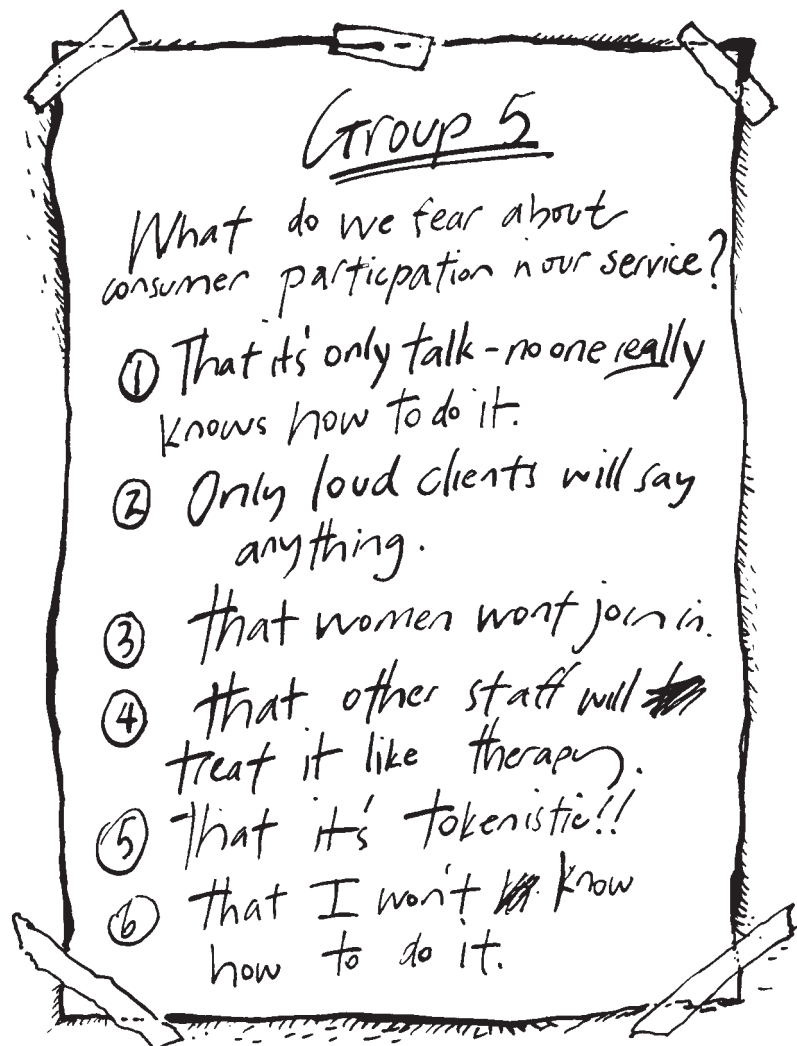 Group 5
What do we fear about
consumer particpation in our service?
① That it's only talk - no one really
knows how to do it.
② Only loud clients will say
anything.
③ that women wont join in.
④ that other staff will
treat it like therapy.
⑤ That it's tokenistic!!
⑥ that I won't know
how to do it.